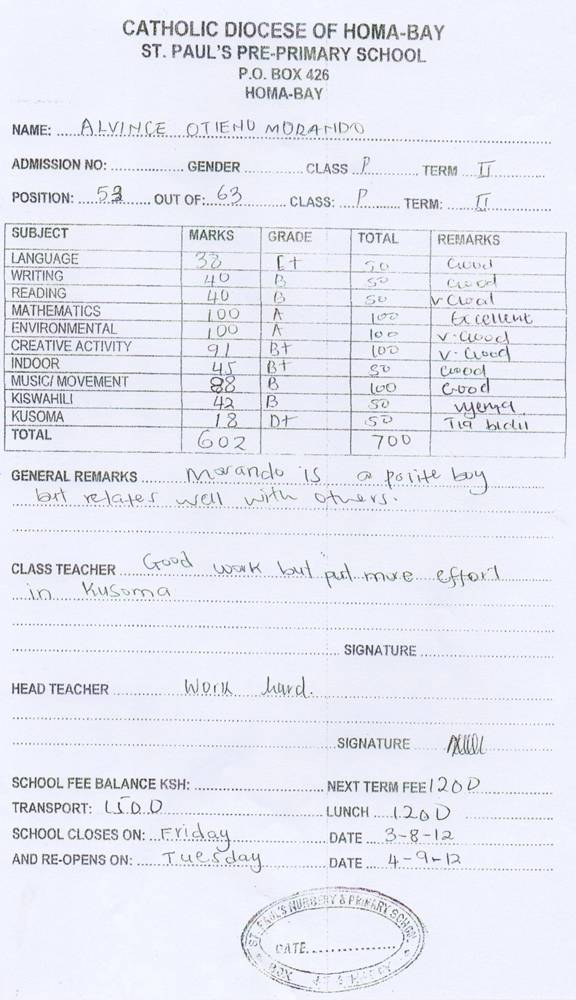 CATHOLIC DIOCESE OF HOMA-BAY
ST. PAUL'S PRE-PRIMARY SCHOOL
P.O. BOX 426
HOMA-BAY
NAME: ALVINCE OTIENO MORANDO
ADMISSION NO: GENDER CLASS P TERM II
POSITION: 53 OUT OF: 63 CLASS: P TERM: II
SUBJECT MARKS GRADE TOTAL REMARKS
LANGUAGE 38 C+ 50 Good
WRITING 40 B 50 Good
READING 40 B 50 v Good
MATHEMATICS 100 A 100 Excellent
ENVIRONMENTAL 100 A 100 V. Good
CREATIVE ACTIVITY 91 B+ 100 V. Good
INDOOR 45 B+ 50 Good
MUSIC/ MOVEMENT 88 B 100 Good
KISWAHILI 42 B 50 vyema
KUSOMA 18 D+ 50 Tia bidii
TOTAL 602 700
GENERAL REMARKS Morando is a polite boy
but relates well with others.
CLASS TEACHER Good work but put more effort
in Kusoma
SIGNATURE
HEAD TEACHER Work hard.
SIGNATURE
SCHOOL FEE BALANCE KSH: NEXT TERM FEE 1200
TRANSPORT: 1500 LUNCH 1200
SCHOOL CLOSES ON: Friday DATE 3-8-12
AND RE-OPENS ON: Tuesday DATE 4-9-12
ST. PAUL'S NURSERY & PRIMARY SCHOOL
DATE
BOX